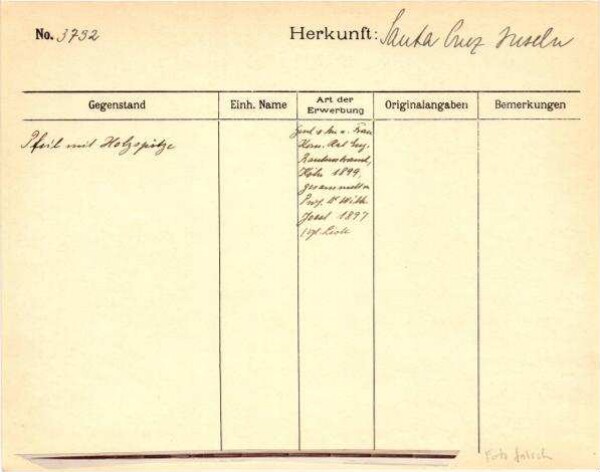 No. 3732
Herkunft: Santa Cruz Inseln
Gegenstand
Einh. Name
Art der Erwerbung
Originalangaben
Bemerkungen
Pfeil mit Holzspitze
Frau
Rautenstrauch,
Köln 1899,
gesammelt v.
Prof. Dr Wilh.
Joest 1897
Foto falsch